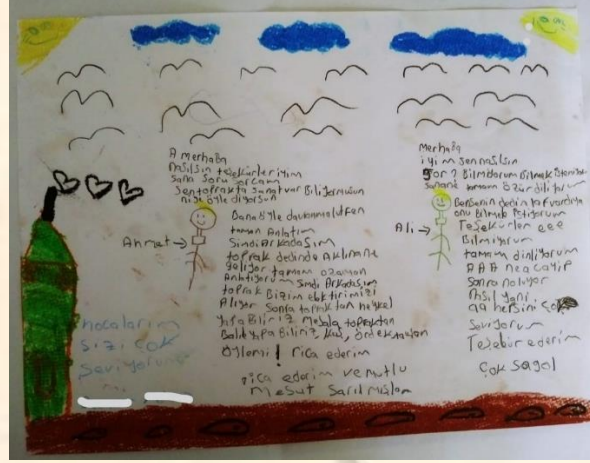 A merhaba
nasılsın teşekürler iyim
sana soru sorcam
Sen toprakta sanat var Biliyormusun
niye öyle diyorsun
Bana öyle davranma lütfen
taman Anlatım
Şindi Arkadaşım
toprak dedinde Aklınane
geliyor tamam ozaman
Anlatıyorum Şindi Arkadaşım
toprak Bizim elektirimizi
Alıyor Sonra topraktan heykel
yapaBiliriz Mesela topraktan
Balık yapa Biliriz, kuş, ördek
Öylemi! rica ederim
rica ederim ve mutlu
mesut
Ahmet →
Merhaba
iyim sen nasılsın
Sor? Bilmiyorum Bilmek istemiyorum
tamam özür diliyorum
onu Bilmek istiyorum
Teşekürler eee
Bilmiyorum
tamam dinliyorum
AAA ne acayip
sonra noluyor
nasıl yani
aa hepsini çok
Seviyorum
Teşekür ederim
Çok sagol
Ali →
hocalarım
sizi çok
Seviyorum